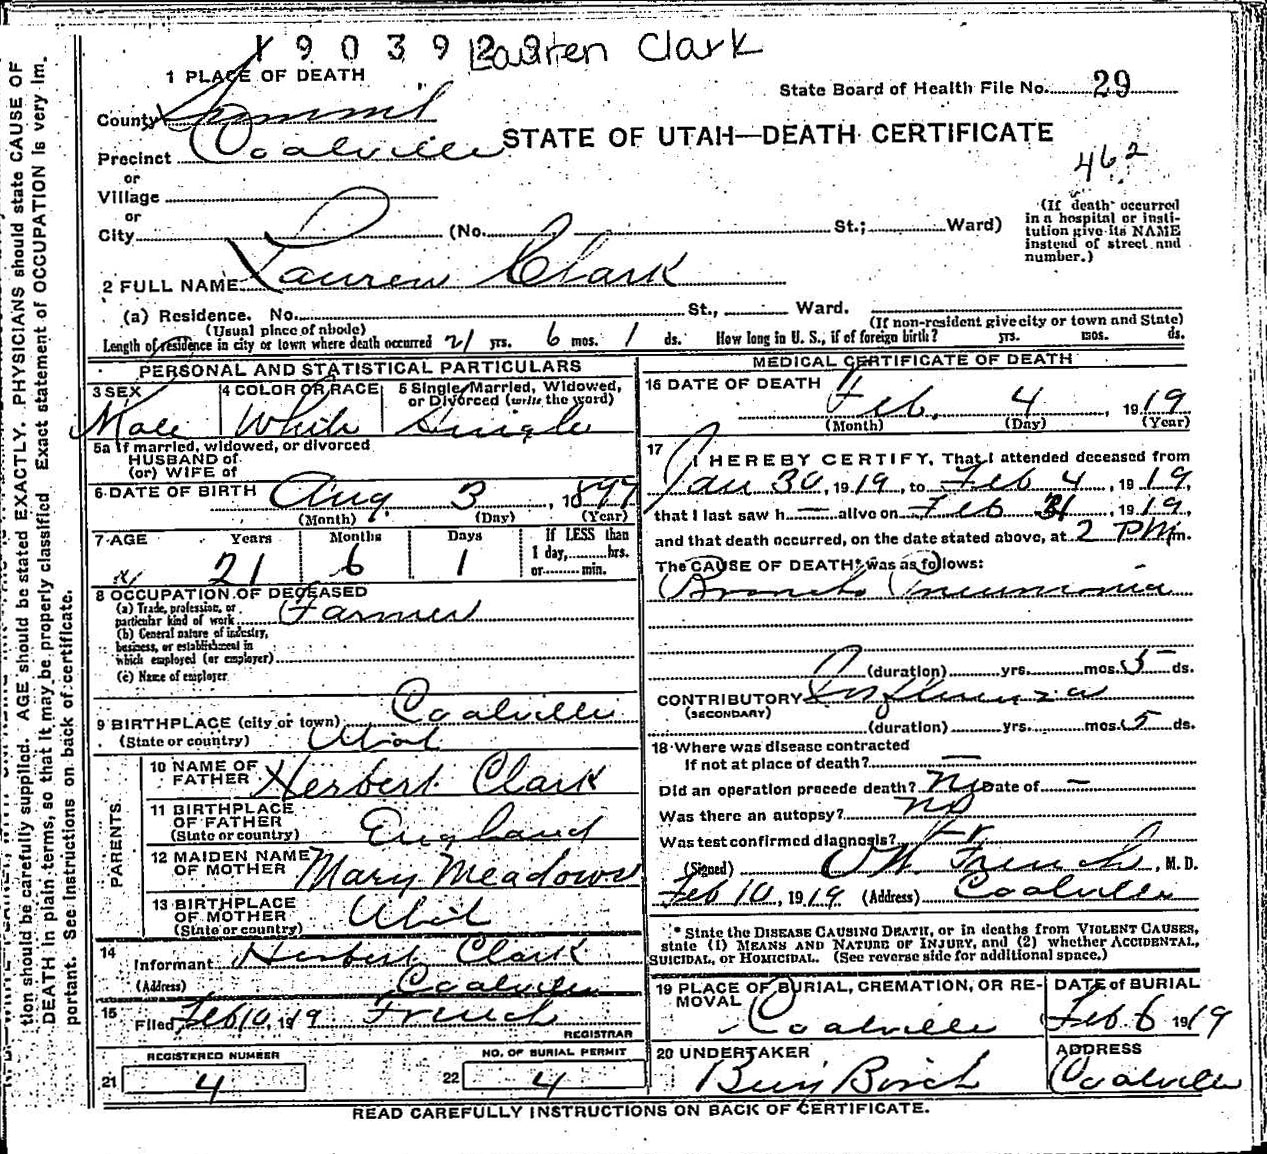 19039 Lauren Clark
1 PLACE OF DEATH
State Board of Health File No. 29
County Summit
STATE OF UTAH—DEATH CERTIFICATE
Precinct Coalville
462
or
Village
or
City (No. St.; Ward)
(If death occurred in a hospital or institution give its NAME instead of street and number.)
2 FULL NAME Lauren Clark
(a) Residence. No. St., Ward.
(Usual place of abode) (If non-resident give city or town and State)
Length of residence in city or town where death occurred 21 yrs. 6 mos. 1 ds. How long in U. S., if of foreign birth? yrs. mos. ds.
PERSONAL AND STATISTICAL PARTICULARS
3 SEX Male
4 COLOR OR RACE White
5 Single, Married, Widowed, or Divorced (write the word) Single
5a If married, widowed, or divorced
HUSBAND of
(or) WIFE of
6 DATE OF BIRTH Aug. 3, 1897
(Month) (Day) (Year)
7 AGE Years Months Days If LESS than
21 6 1 1 day, hrs.
or min.
8 OCCUPATION OF DECEASED
(a) Trade, profession, or
particular kind of work Farmer
(b) General nature of industry,
business, or establishment in
which employed (or employer)
(c) Name of employer
9 BIRTHPLACE (city or town) Coalville
(State or country) Utah
PARENTS
10 NAME OF
FATHER Herbert Clark
11 BIRTHPLACE
OF FATHER
(State or country) England
12 MAIDEN NAME
OF MOTHER Mary Meadows
13 BIRTHPLACE
OF MOTHER
(State or country) Utah
14
Informant Herbert Clark
(Address) Coalville
15
Filed Feb 10, 1919 French
REGISTRAR
REGISTERED NUMBER
21 4
NO. OF BURIAL PERMIT
22 4
MEDICAL CERTIFICATE OF DEATH
16 DATE OF DEATH
Feb. 4, 1919
(Month) (Day) (Year)
17
I HEREBY CERTIFY, That I attended deceased from
Jan 30, 1919, to Feb 4, 1919,
that I last saw h — alive on Feb 1919,
and that death occurred, on the date stated above, at 2 PM m.
The CAUSE OF DEATH* was as follows:
Broncho Pneumonia
(duration) yrs. mos. 5 ds.
CONTRIBUTORY Influenza
(SECONDARY)
(duration) yrs. mos. 5 ds.
18 Where was disease contracted
If not at place of death? —
Did an operation precede death? No Date of —
Was there an autopsy? no
Was test confirmed diagnosis?
(Signed) French, M. D.
Feb 10, 1919 (Address) Coalville
* State the DISEASE CAUSING DEATH, or in deaths from VIOLENT CAUSES,
state (1) MEANS AND NATURE OF INJURY, and (2) whether ACCIDENTAL,
SUICIDAL, or HOMICIDAL. (See reverse side for additional space.)
19 PLACE OF BURIAL, CREMATION, OR REMOVAL
Coalville
DATE of BURIAL
Feb. 6 1919
20 UNDERTAKER
Birch
ADDRESS
Coalville
READ CAREFULLY INSTRUCTIONS ON BACK OF CERTIFICATE.
tion should be carefully supplied. AGE should be stated EXACTLY. PHYSICIANS should state CAUSE OF
DEATH in plain terms, so that it may be properly classified. Exact statement of OCCUPATION is very im-
portant. See instructions on back of certificate.